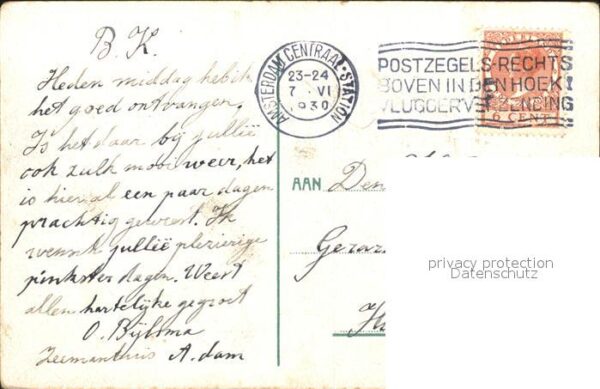 B. K.
Heden middag heb ik
het goed ontvangen.
Is het daar bij jullië
ook zulk mooi weer, het
is hier al een paar dagen
prachtig geweest. Ik
wensch jullië plezierige
pinkster dagen. Weest
allen hartelijke gegroet
O. Bijlsma
Zeemanthuis A.dam
AMSTERDAM CENTRAAL-STATION
23-24
7 VI
1930
POSTZEGELS RECHTS
BOVEN IN DEN HOEK!
VLUGGER VERZENDING
6 CENT
AAN Den
Gerar
privacy protection
Datenschutz